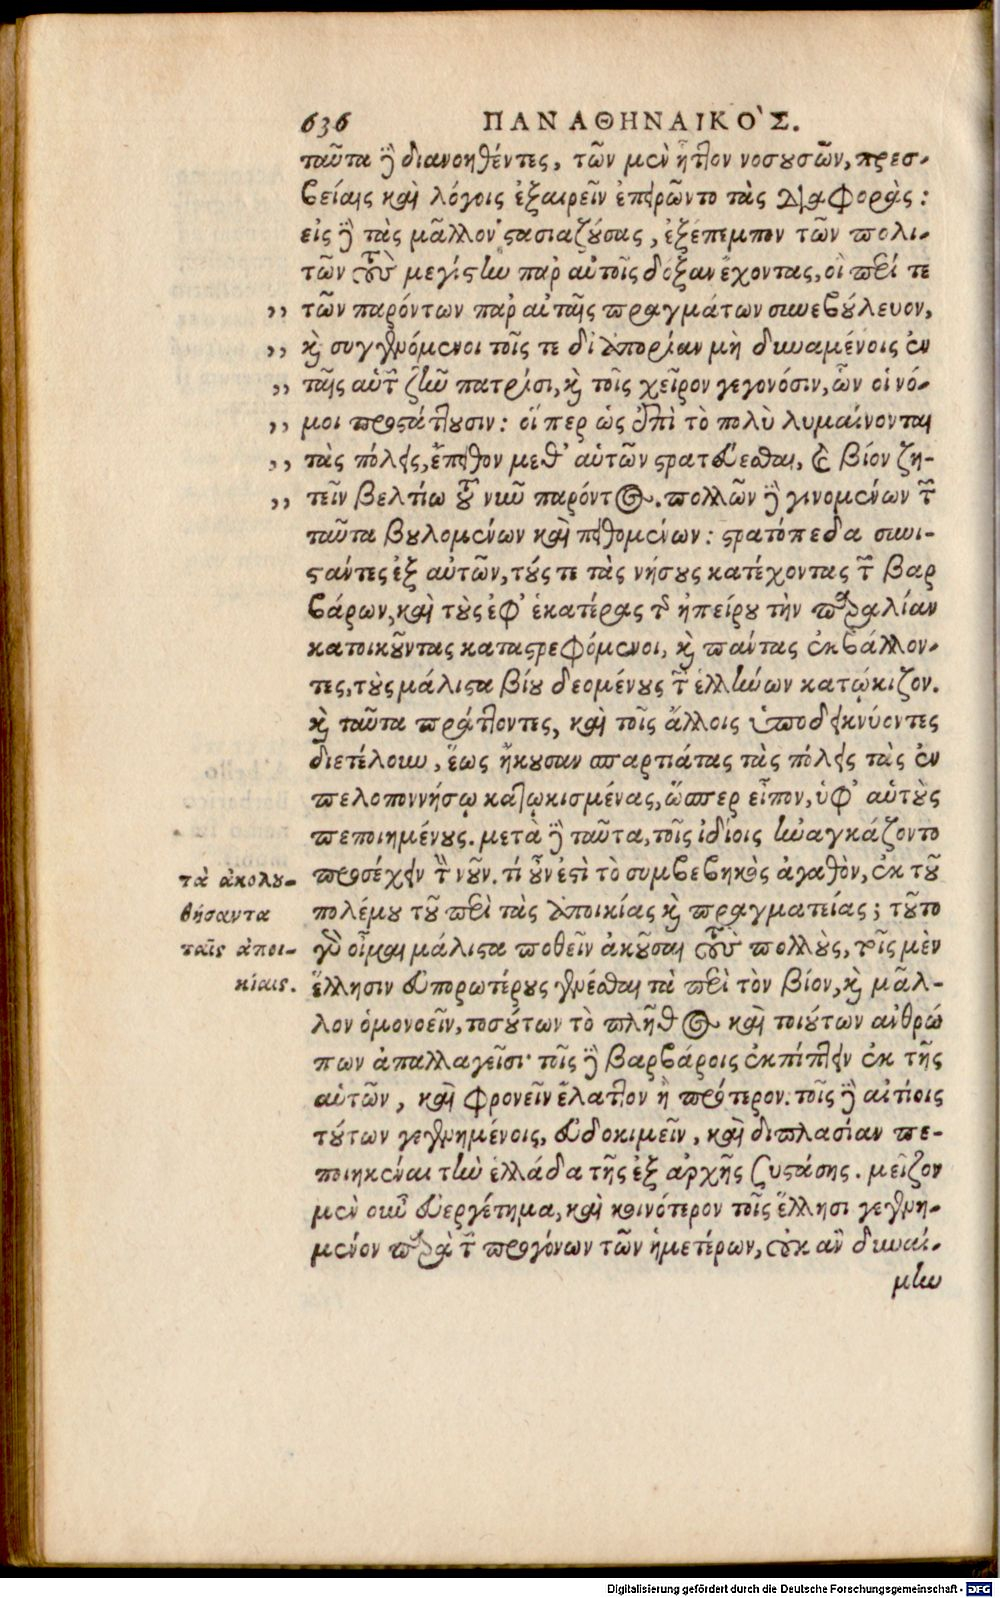 636 ΠΑΝΑΘΗΝΑΙΚΟ`Σ.
ταῦτα ἢ διανοηθέντες, τῶν μὲν ἧττον νοσουσῶν, πρεσ-
βείαις καὶ λόγοις ἐξαιρεῖν ἐπειρῶντο τὰς διαφοράς:
εἰς δὲ τὰς μᾶλλον στασιαζούσας, ἐξέπεμπον τῶν πολι-
τῶν τοὺς μεγίστην παρ' αὐτοῖς δόξαν ἔχοντας, οἳ περί τε
,, τῶν παρόντων παρ' αὐταῖς πραγμάτων συνεβούλευον,
,, καὶ συγγινόμενοι τοῖς τε δι' ἀπορίαν μὴ δυναμένοις ἐν
,, ταῖς αὑτῶν ζῆν πατρίσι, καὶ τοῖς χεῖρον γεγονόσιν, ὧν οἱ νό-
,, μοι προστάττουσιν: οἵπερ ὡς ἐπὶ τὸ πολὺ λυμαίνονται
,, τὰς πόλεις, ἔπειθον μεθ' αὑτῶν στρατεύεσθαι, καὶ βίον ζη-
,, τεῖν βελτίω τοῦ νῦν παρόντος. πολλῶν δὲ γινομένων τῶν
ταῦτα βουλομένων καὶ πειθομένων: στρατόπεδα συνι-
στάντες ἐξ αὐτῶν, τούς τε τὰς νήσους κατέχοντας τῶν βαρ
βάρων, καὶ τοὺς ἐφ' ἑκατέρας τῆς ἠπείρου τὴν παραλίαν
κατοικοῦντας καταστρεφόμενοι, καὶ πάντας ἐκβάλλον-
τες, τοὺς μάλιστα βίου δεομένους τῶν ἑλλήνων κατῴκιζον.
καὶ ταῦτα πράττοντες, καὶ τοῖς ἄλλοις ὑποδεικνύοντες
διετέλουν, ἕως ἤκουσαν σπαρτιάτας τὰς πόλεις τὰς ἐν
πελοποννήσῳ κατῳκισμένας, ὥσπερ εἶπον, ὑφ' αὑτοὺς
πεποιημένους. μετὰ δὲ ταῦτα, τοῖς ἰδίοις ἠναγκάζοντο
προσέχειν τὸν νοῦν. τί οὖν ἐστὶ τὸ συμβεβηκὸς ἀγαθὸν, ἐκ τοῦ
πολέμου τοῦ περὶ τὰς ἀποικίας καὶ πραγματείας; τοῦτο
γὰρ οἶμαι μάλιστα ποθεῖν ἀκοῦσαι τοὺς πολλούς, τοῖς μὲν
ἕλλησιν εὐπορωτέρους γενέσθαι τὰ περὶ τὸν βίον, καὶ μᾶλ-
λον ὁμονοεῖν, τοσούτων τὸ πλῆθος καὶ τοιούτων ἀνθρώ
πων ἀπαλλαγεῖσι· τοῖς δὲ βαρβάροις ἐκπίπτειν ἐκ τῆς
αὑτῶν, καὶ φρονεῖν ἔλαττον ἢ πρότερον. τοῖς δὲ αἰτίοις
τούτων γεγενημένοις, εὐδοκιμεῖν, καὶ διπλασίαν πε-
ποιηκέναι τὴν ἑλλάδα τῆς ἐξ ἀρχῆς συστάσης. μεῖζον
μὲν οὖν εὐεργέτημα, καὶ κοινότερον τοῖς ἕλλησι γεγενη-
μένον παρὰ τῶν προγόνων τῶν ἡμετέρων, οὐκ ἂν δυναί-
μην
τὰ ἀκολου-
θήσαντα
ταῖς ἀποι-
κίαις.
Digitalisierung gefördert durch die Deutsche Forschungsgemeinschaft - DFG